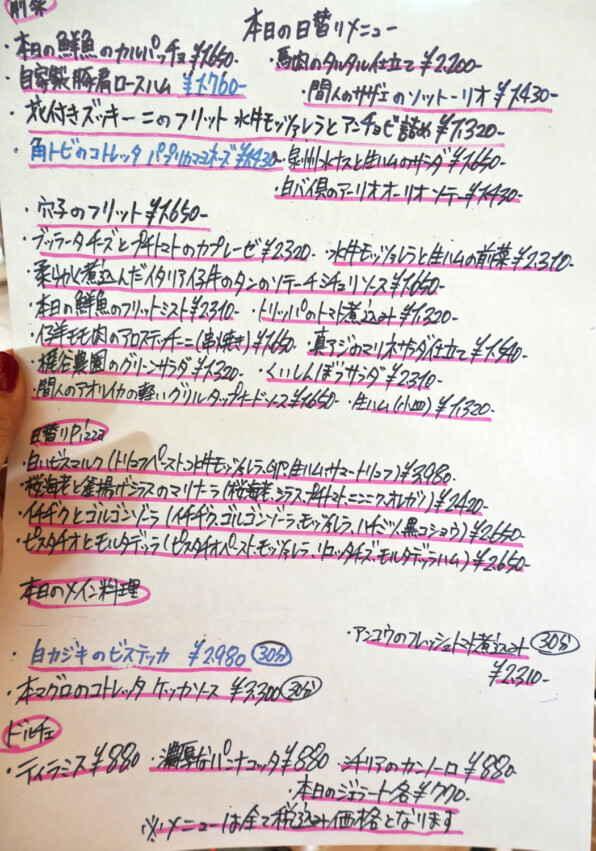 前菜
本日の日替りメニュー
・本日の鮮魚のカルパッチョ ¥1.650-
・馬肉のタルタル仕立て ¥2.200-
・自家製豚肩ロースハム ¥1.760-
・間人のサザエのソットーリオ ¥1.430-
・花付きズッキーニのフリット 水牛モッツァレラとアンチョビ詰め ¥1.320-
・角トビのコトレッタ パプリカマヨネーズ ¥1.430-
・泉州水ナスと生ハムのサラダ ¥1.650-
・白バイ貝のアーリオオーリオソテー ¥1.430-
・穴子のフリット ¥1.650-
・ブッラータチーズとプチトマトのカプレーゼ ¥2.320-
・水牛モッツァレラと生ハムの前菜 ¥2.310-
・柔らかく煮込んだイタリア仔牛のタンのソテーチシチリソース ¥1.650-
・本日の鮮魚のフリットミスト ¥2310-
・トリッパのトマト煮込み ¥1.320-
・仔羊モモ肉のアロスティチーニ(串焼き) ¥1.650-
・真アジのマリネサラダ仕立て ¥1.540-
農園のグリーンサラダ ¥1.320
・くいしんぼうサラダ ¥2.310-
・間人のアオリイカの軽いグリルタップナードソース ¥1.650-
・生ハム(小皿) ¥1.320-
日替りPizza
・白いビスマルク(トリュフペースト、水牛モッツァレラ、卵、生ハム、サマートリュフ) ¥3.980-
・桜海老と釜揚げシラスのマリナーラ(桜海老、シラス、プチトマト、ニンニク、オレガノ) ¥2.420-
・イチヂクとゴルゴンゾーラ(イチヂク、ゴルゴンゾーラ、モッツァレラ、ハチミツ、黒コショウ) ¥2.650-
・ピスタチオとモルタデッラ(ピスタチオペースト、モッツァレラ、リコッタチーズ、モルタデッラハム) ¥2.650-
本日のメイン料理
・アンコウのフレッシュトマト煮込み 30分
¥2.310-
・白カジキのビステッカ ¥2.980 30分
・本マグロのコトレッタ ケッカソース ¥3.300 30分
ドルチェ
・ティラミス ¥880
・濃厚なパンナコッタ ¥880
・シチリアのカンノーロ ¥880
・本日のジェラート各 ¥770-
※メニューは全て税込み価格となります